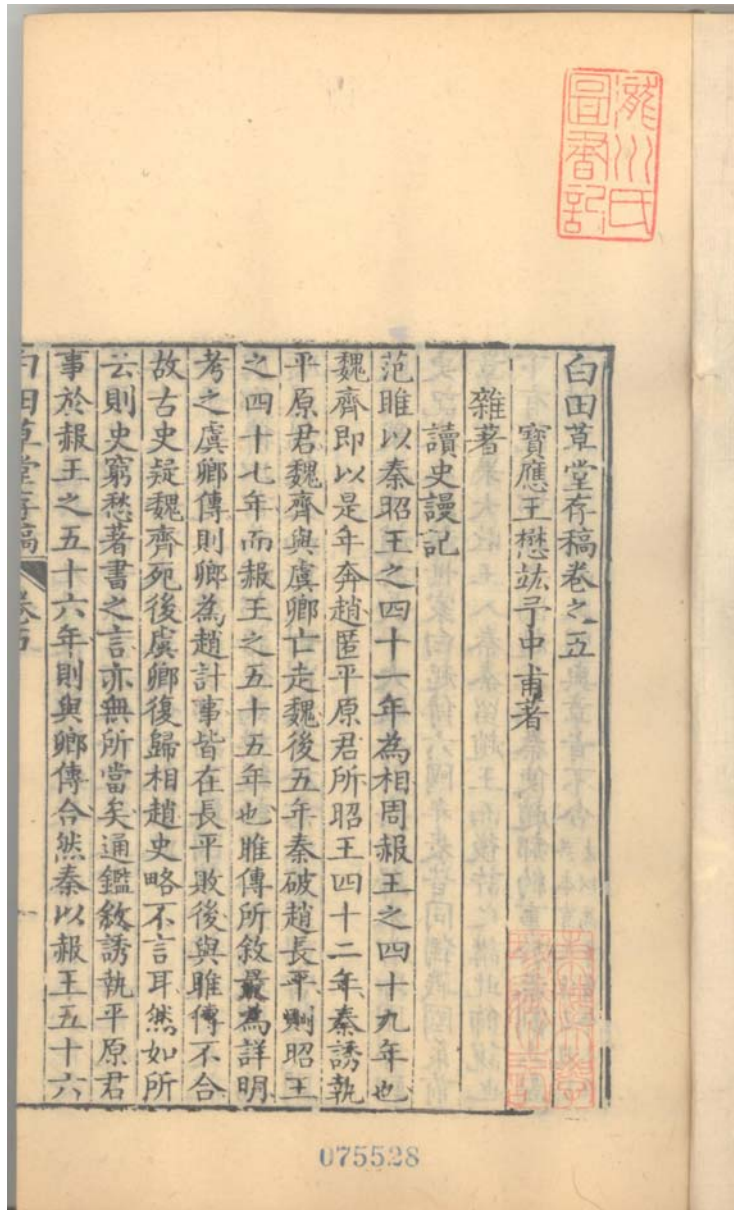 瀧川氏
圖書記
白田草堂存稿卷之五
寶應王懋竑予中甫著
雜著
讀史謾記
范雎以秦昭王之四十一年為相周赧王之四十九年也
魏齊即以是年奔趙匿平原君所昭王四十二年秦誘執
平原君魏齊與虞卿亡走魏後五年秦破趙長平則昭王
之四十七年而赧王之五十五年也雎傳所敘最為詳明
考之虞卿傳則卿為趙計事皆在長平敗後與雎傳不合
故古史疑魏齊死後虞卿復歸相趙史略不言耳然如所
云則史窮愁著書之言亦無所當矣通鑑敘誘執平原君
事於赧王之五十六年則與卿傳合然秦以赧王五十六
白田草堂存稿 卷五
075528